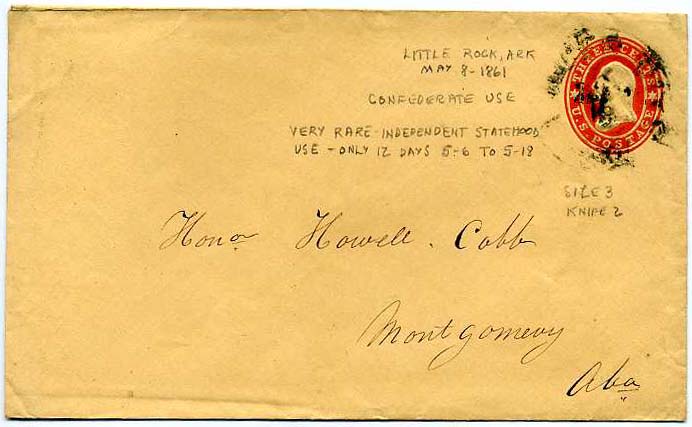 LITTLE ROCK, ARK
MAY 8-1861
CONFEDERATE USE
VERY RARE - INDEPENDENT STATEHOOD
USE - ONLY 12 DAYS 5-6 TO 5-18
THREE CENTS
U.S. POSTAGE
SIZE 3
KNIFE 2
Honor Howell. Cobb
Montgomery
Aba